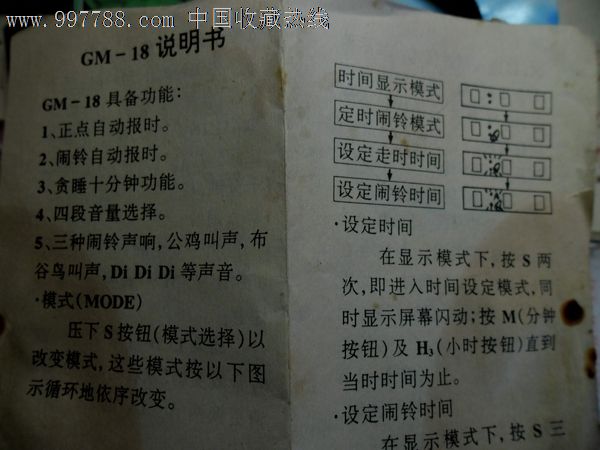 www.997788.com 中国收藏热线
GM-18 说明书
GM-18 具备功能：
1、正点自动报时。
2、闹铃自动报时。
3、贪睡十分钟功能。
4、四段音量选择。
5、三种闹铃声响，公鸡叫声，布
谷鸟叫声，Di Di Di 等声音。
·模式(MODE)
压下S按钮(模式选择)以
改变模式，这些模式按以下图
示循环地依序改变。
时间显示模式
定时闹铃模式
设定走时时间
设定闹铃时间
·设定时间
在显示模式下，按 S 两
次，即进入时间设定模式，同
时显示屏幕闪动；按 M(分钟
按钮)及 H₃(小时按钮)直到
当时时间为止。
·设定闹铃时间
在显示模式下，按 S 三